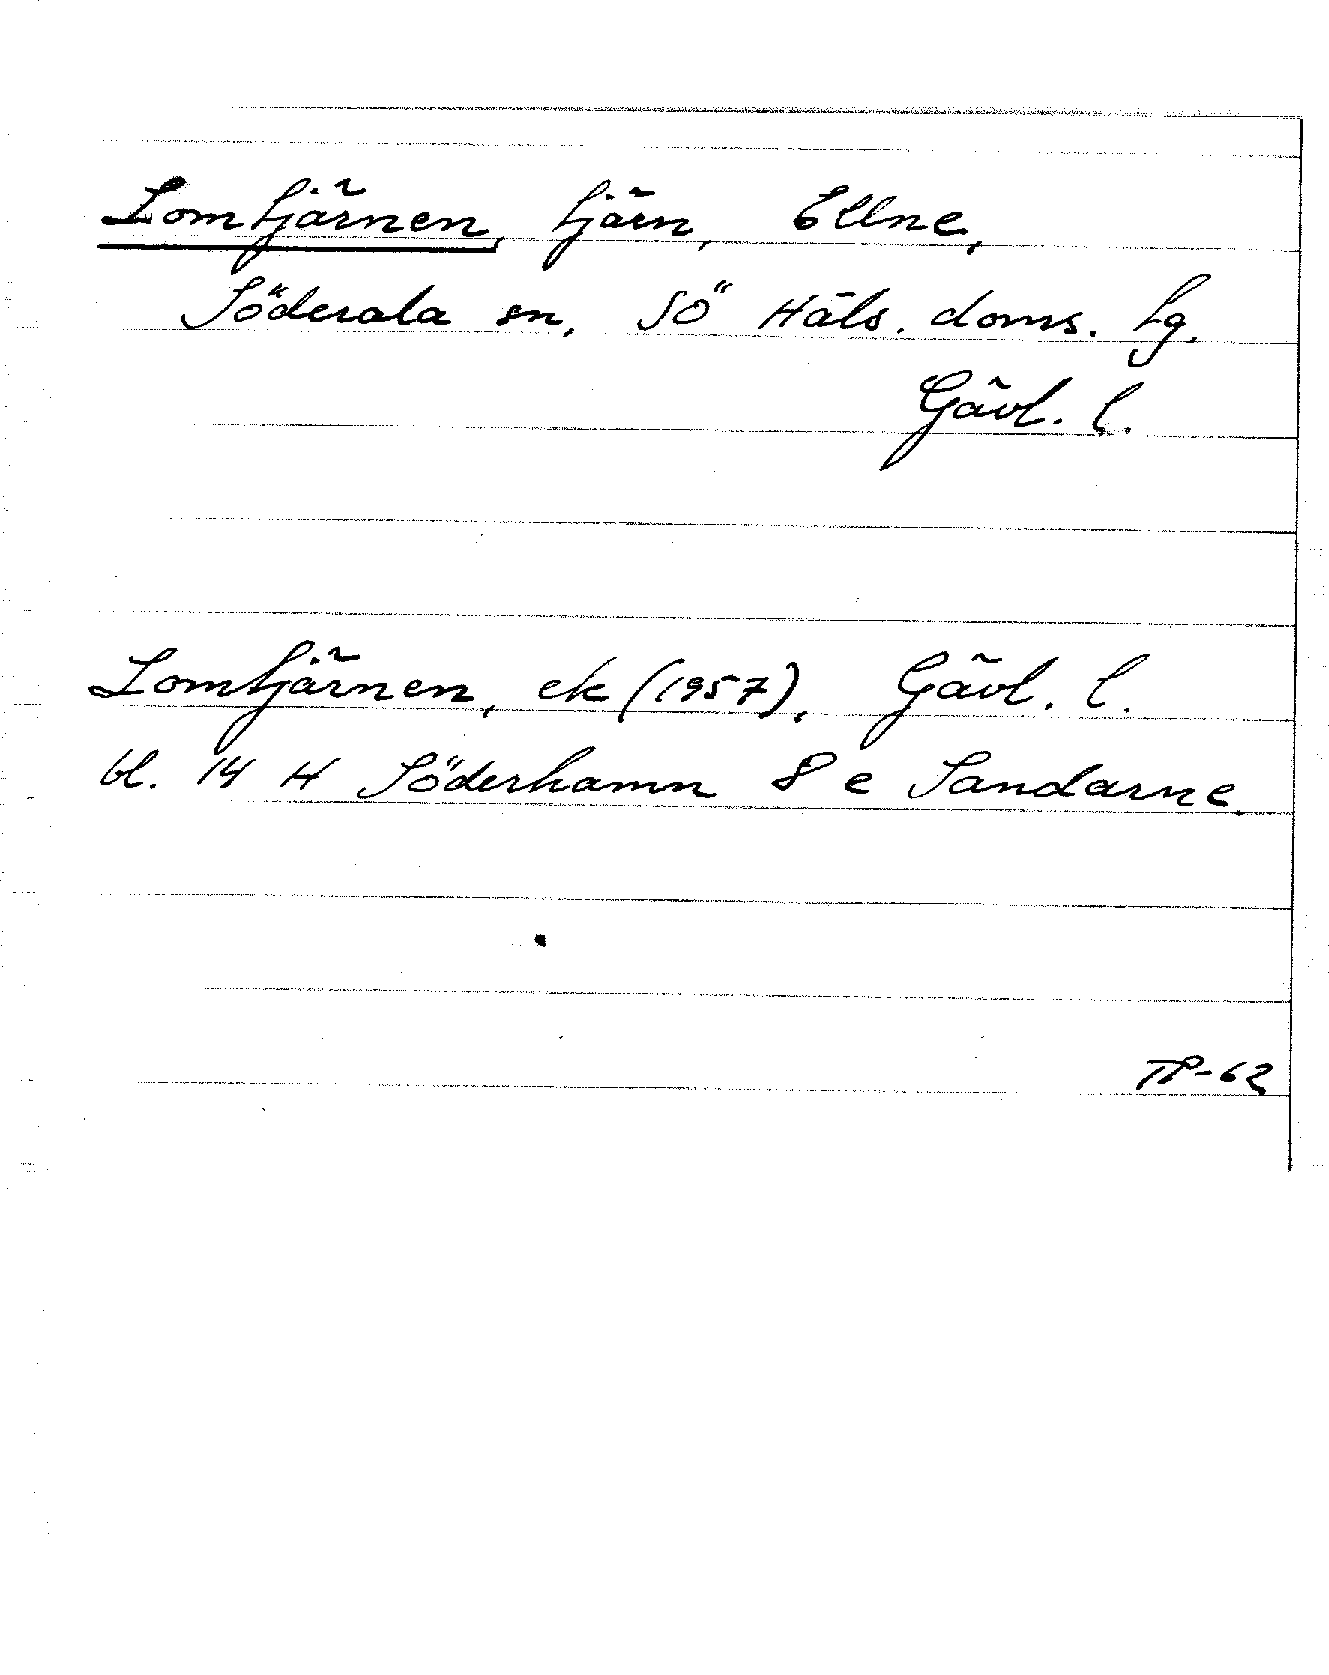 Lomtjärnen, tjärn, Ellne,
Söderala sn, SÖ Häls. doms. tg.
Gävl. l.
Lomtjärnen, ek (1957), Gävl. l.
bl. 14 H Söderhamn 8 e Sandarne.
TP-62